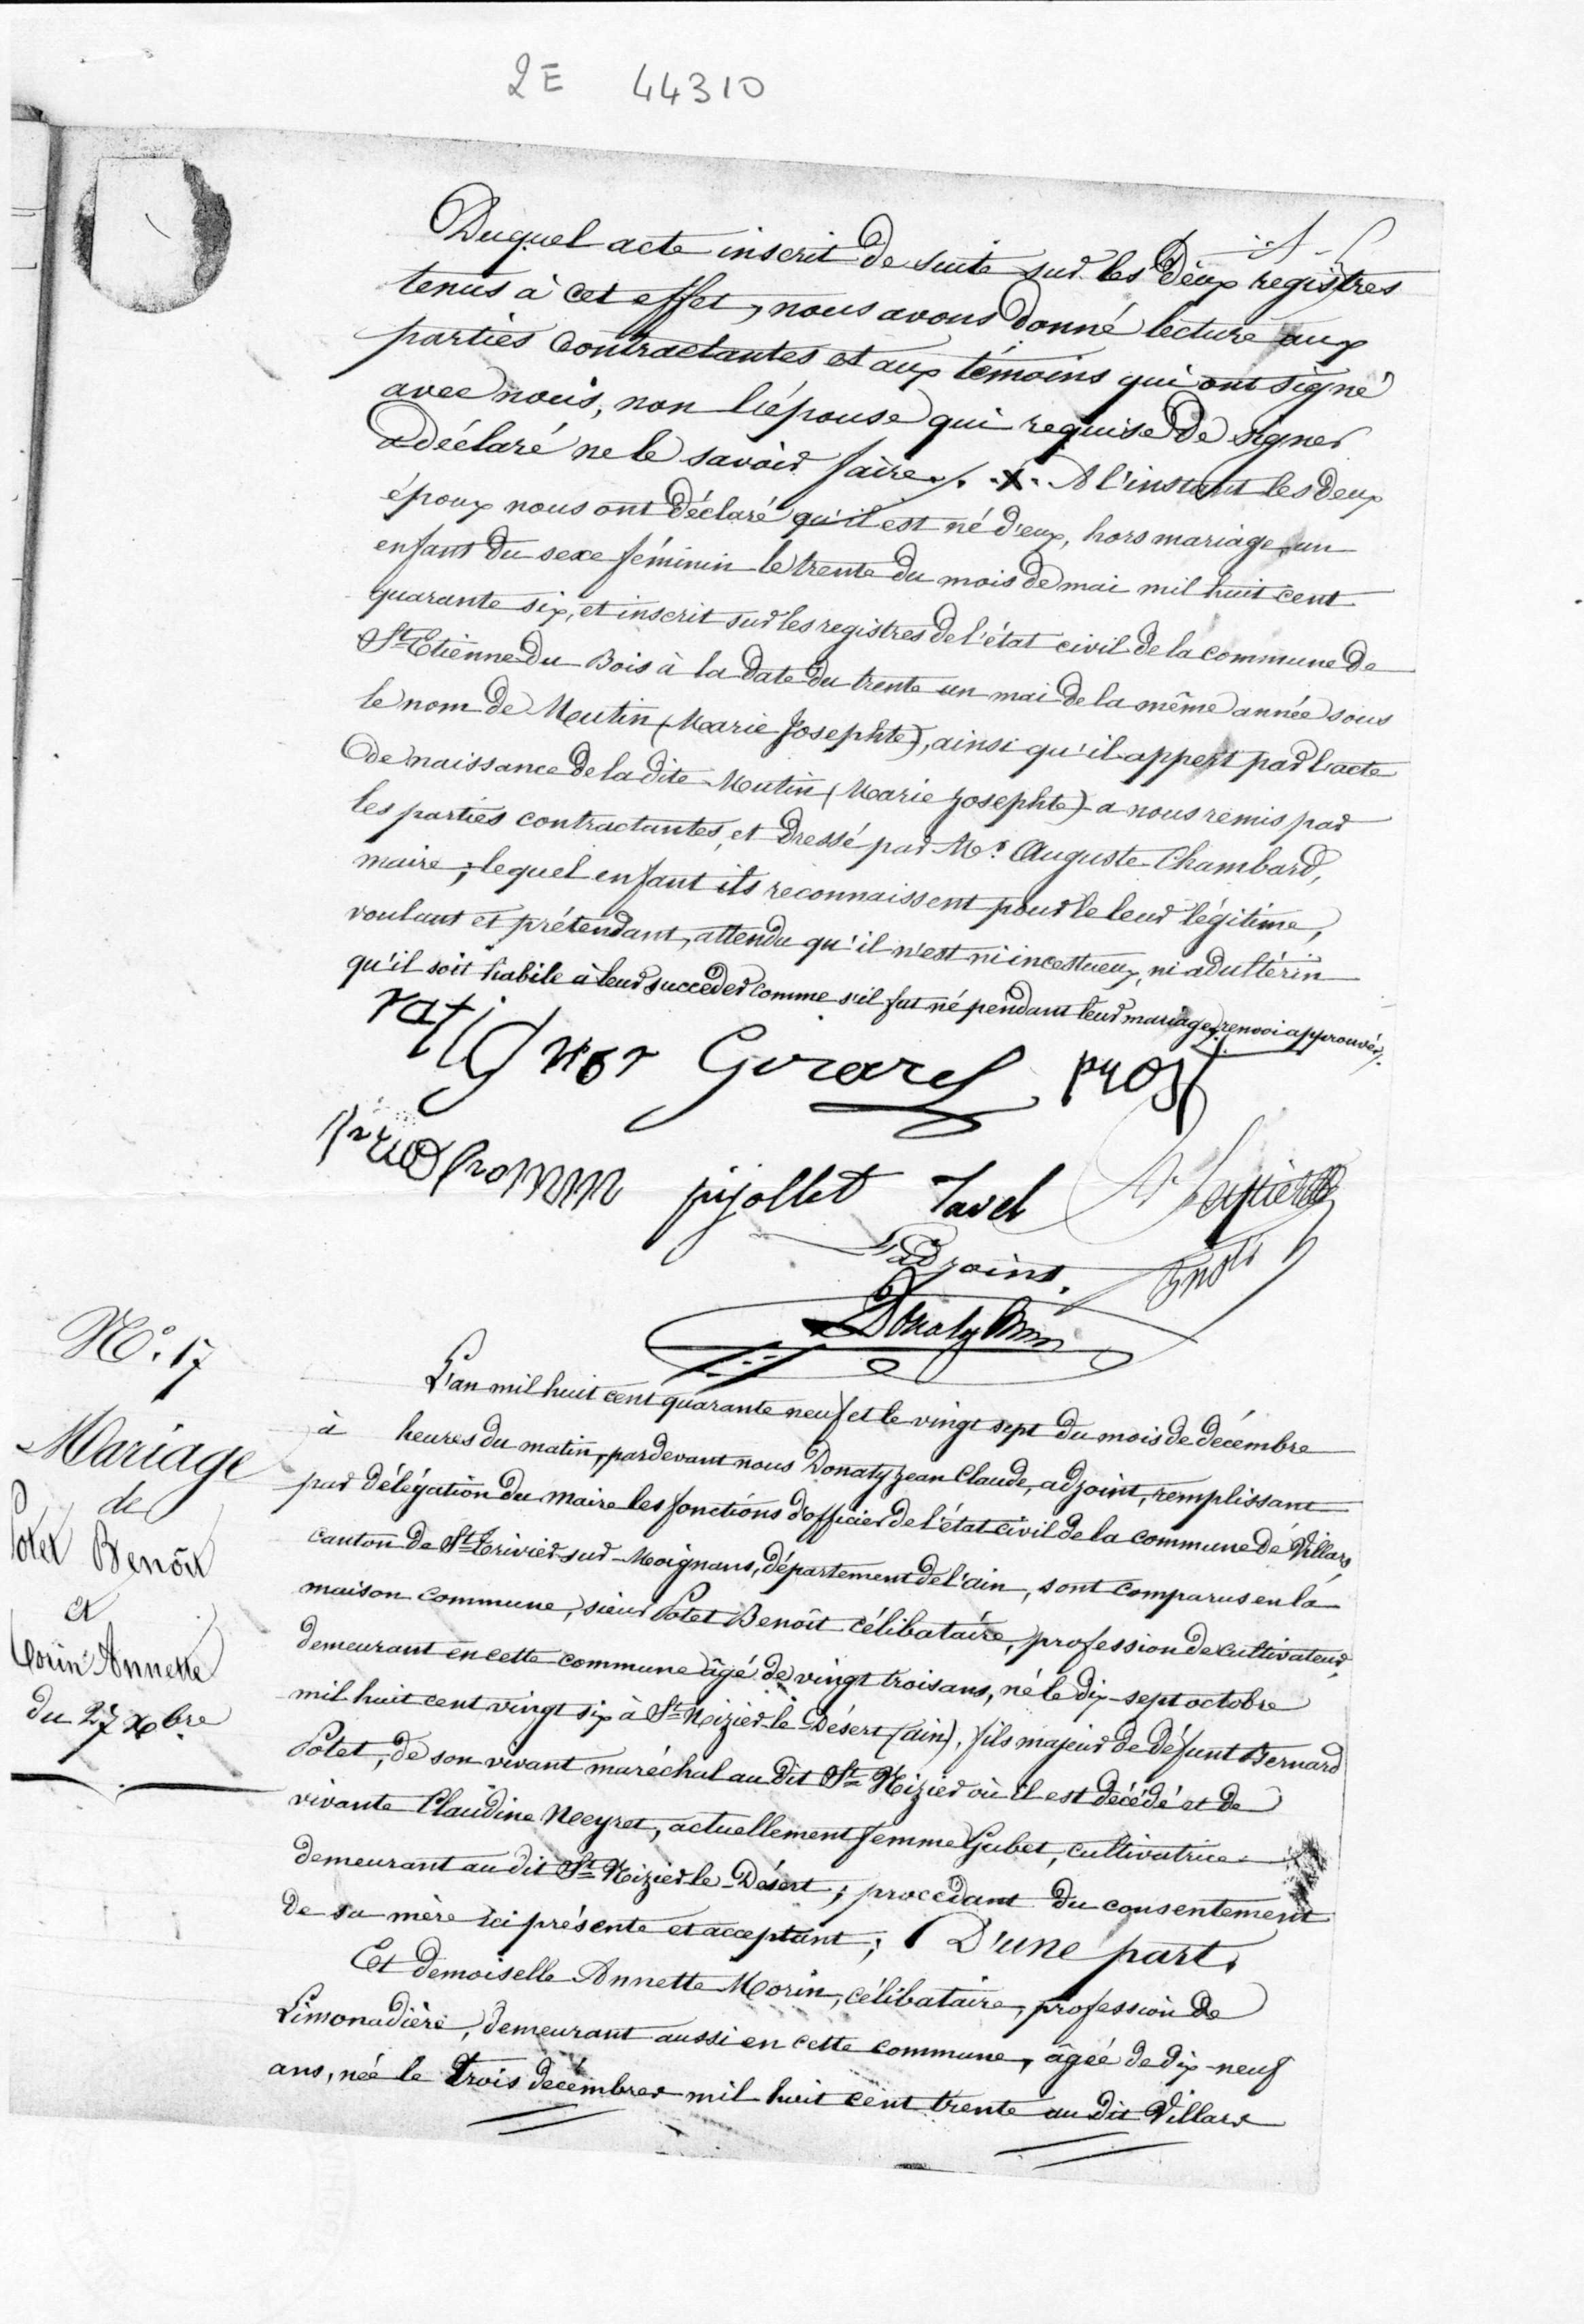 2E 44310
Duquel acte inscrit de suite sur les deux registres
tenus à cet effet, nous avons donné lecture aux
parties contractantes et aux témoins qui ont signé
avec nous, non l'épouse qui requise de signer
a déclaré ne le savoir faire ./. .X. A l'instant les deux
époux nous ont déclaré qu'il est né d'eux, hors mariage, un
enfant du sexe féminin le trente du mois de mai mil huit cent
quarante six, et inscrit sur les registres de l'état civil de la commune de
St Etienne du Bois à la date du trente un mai de la même année sous
le nom de Mutin (Marie Josephte), ainsi qu'il appert par l'acte
de naissance de la dite Mutin (Marie Josephte) a nous remis par
les parties contractantes, et dressé par Mr. Auguste Chambard,
maire; lequel enfant ils reconnaissent pour le leur légitime,
voulant et prétendant, attendu qu'il n'est ni incestueux, ni adultérin
qu'il soit habile à leur succéder comme s'il fut né pendant leur mariage, renvoi approuvé ./.
Girard prost
prudhomm pijollet Tavel
L'adjoint.
Donaty
No. 17
Mariage
de
Potet Benoît
et
Morin Annette
du 27 Xbre
L'an mil huit cent quarante neuf et le vingt sept du mois de décembre
à heures du matin, pardevant nous Donaty Jean Claude, adjoint, remplissant
par délégation du Maire les fonctions d'officier de l'état civil de la commune de Villars,
canton de St Trivier sur Moignans, département de l'ain, sont comparus en la
maison commune, sieur Potet Benoît célibataire, profession de cultivateur,
demeurant en cette commune âgé de vingt trois ans, né le dix sept octobre
mil huit cent vingt six à St Nizier le Désert (ain), fils majeur de défunt Bernard
Potet, de son vivant maréchal au dit St Nizier où il est décédé et de
vivante Claudine Neyret, actuellement femme Gubet, cultivatrice
demeurant au dit St Nizier le Désert; procédant du consentement
de sa mère ici présente et acceptant; D'une part.
Et demoiselle Annette Morin, célibataire, profession de
Limonadière, demeurant aussi en cette commune, âgée de dix neuf
ans, née le trois décembre mil huit cent trente au dit Villars